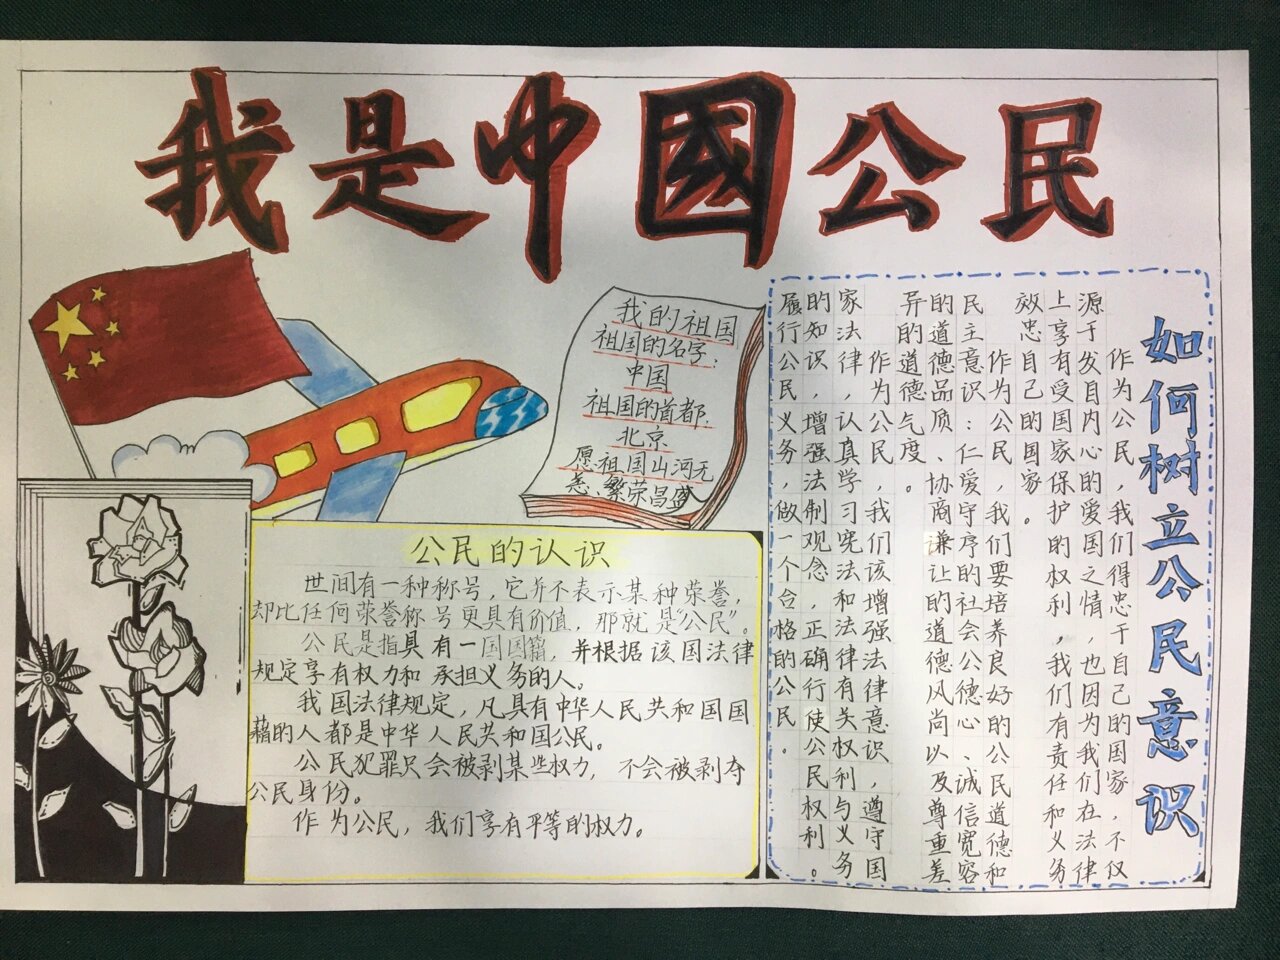 我是中國公民
我的祖国
祖国的名字：
中国
祖国的首都：
北京
愿祖国山河无
恙、繁荣昌盛
公民的认识
世间有一种称号，它并不表示某种荣誉，
却比任何荣誉称号更具有价值，那就是“公民”。
公民是指具有一国国籍，并根据该国法律
规定享有权力和承担义务的人。
我国法律规定，凡具有中华人民共和国国
籍的人都是中华人民共和国公民。
公民犯罪只会被剥某些权力，不会被剥夺
公民身份。
作为公民，我们享有平等的权力。
如何树立公民意识
作为公民，我们得忠于自己的国家，不仅
源于发自内心的爱国之情，也因为我们在法律
上享有受国家保护的权利，我们有责任和义务
效忠自己的国家。
作为公民，我们要培养良好的公民道德和
民主意识：仁爱守序的社会公德心、诚信宽容
的道德品质、协商谦让的道德风尚以及尊重差
异的道德气度。
作为公民，我们该增强法律意识，遵守国
家法律，认真学习宪法和法律有关权利与义务
的知识，增强法制观念，正确行使公民权利。
履行公民义务，做一个合格的公民。